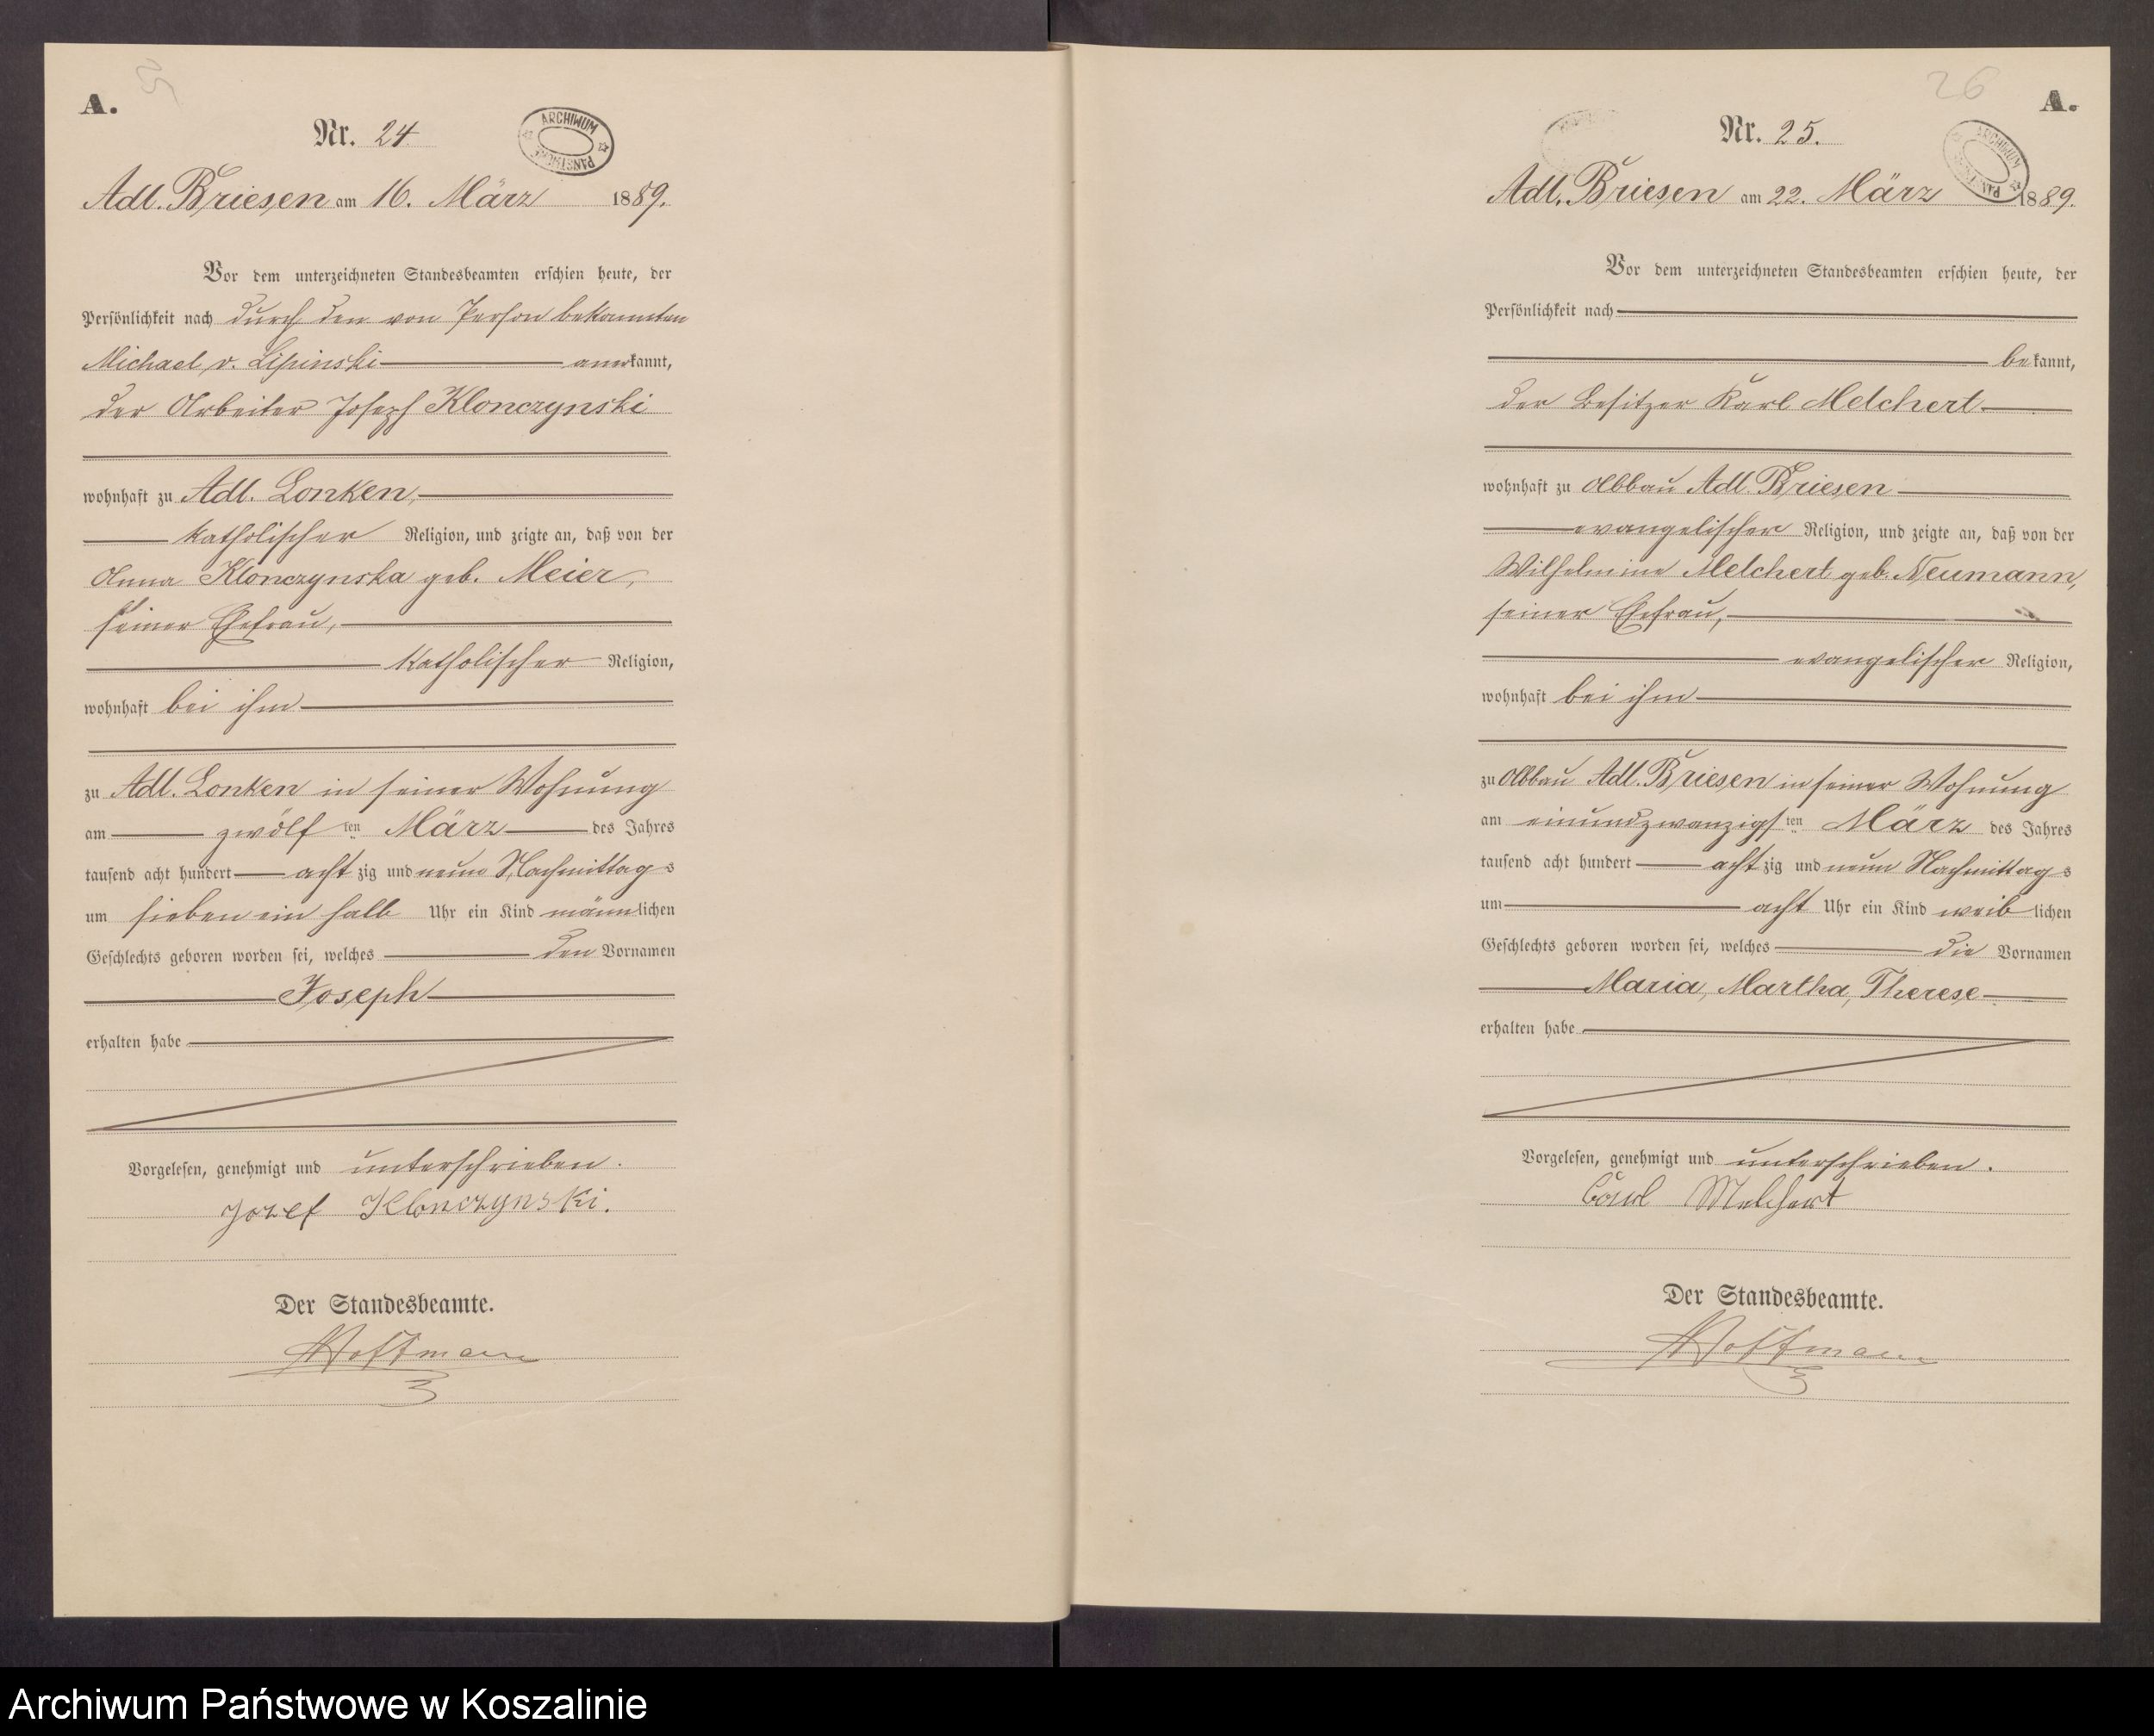 A.
Nr. 24.
ARCHIWUM
Adl. Briesen am 16. März 1889.
Vor dem unterzeichneten Standesbeamten erschien heute, der
Persönlichkeit nach durch den von Person bekannten
Michael v. Lipinski anerkannt,
der Arbeiter Joseph Klonczynski
wohnhaft zu Adl. Lonken,
katholischer Religion, und zeigte an, daß von der
Anna Klonczynska geb. Meier,
seiner Ehefrau,
katholischer Religion,
wohnhaft bei ihm
zu Adl. Lonken in seiner Wohnung
am zwölf ten März des Jahres
tausend acht hundert acht zig und neun Nachmittags
um sieben ein halb Uhr ein Kind männlichen
Geschlechts geboren worden sei, welches den Vornamen
Joseph
erhalten habe
Vorgelesen, genehmigt und unterschrieben.
Jozef Klonczynski.
Der Standesbeamte.
Hoffmann
26
A.
Nr. 25.
ARCHIWUM
Adl. Briesen am 22. März 1889.
Vor dem unterzeichneten Standesbeamten erschien heute, der
Persönlichkeit nach
bekannt,
der Besitzer Karl Melchert
wohnhaft zu Abbau Adl. Briesen
evangelischer Religion, und zeigte an, daß von der
Wilhelmine Melchert geb. Neumann,
seiner Ehefrau,
evangelischer Religion,
wohnhaft bei ihm
zu Abbau Adl. Briesen in seiner Wohnung
am einundzwanzigs ten März des Jahres
tausend acht hundert acht zig und neun Nachmittags
um acht Uhr ein Kind weiblichen
Geschlechts geboren worden sei, welches die Vornamen
Maria, Martha, Therese
erhalten habe
Vorgelesen, genehmigt und unterschrieben.
Carl Melchert
Der Standesbeamte.
Hoffmann
Archiwum Państwowe w Koszalinie